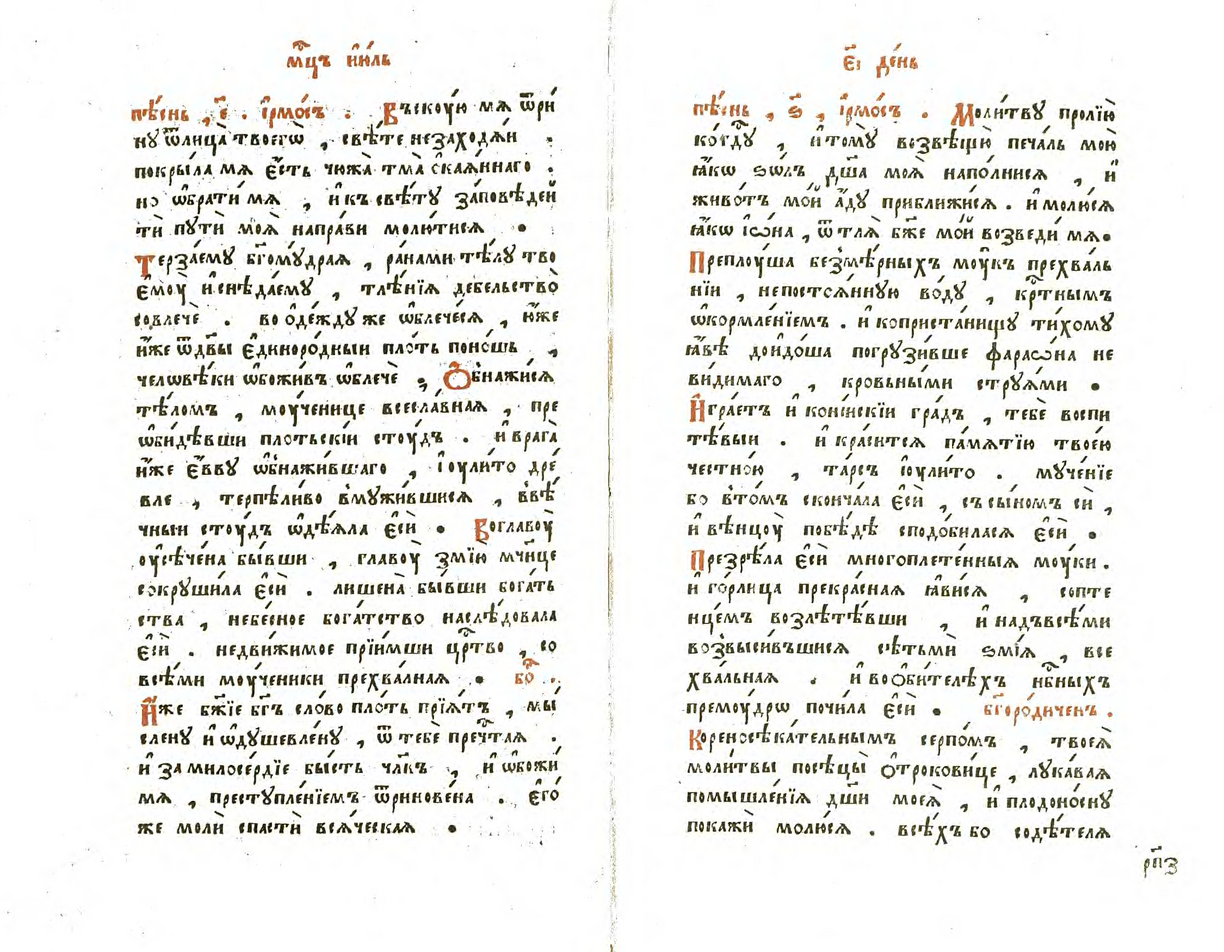 мⷭ҇цъ і҆ю́ль
пѣ́снь , є҃ . і҆рмо́съ . Въскоую мѧ ѿри́
ну ѿлица̀ твоегѡ̀ , свѣ́те незаходѧ́и .
покры́ла мѧ є҆́сть чюжа̀ тма̀ ѻ҆каѧ́ннаго .
но ѡ҆брати́ мѧ , и҆ къ свѣ́ту за́повѣдей
ти̑ пути̑ моѧ̑ напра́ви молю́тисѧ •
Терза́ему бг҃ому́драѧ , ра́нами тѣ́лу тво
є҆моу̀ и҆ снѣда́ему , тлѣ́нїѧ дебельство̀
совлече̂ . во ѻ҆де́жду же ѡ҆блече́сѧ , ю҆́же
и҆́же ѿ дв҃ы є҆диноро́дныи пло́ть поно́шь ,
челѡвѣ́ки ѡ҆божи́въ ѡ҆блече̂ , Ѻ҆бнажи́сѧ
тѣ́ломъ , моу́ченице всесла́внаѧ , пре
ѡ҆би́дѣвши пло́тьскїи сту́дъ . и҆ врага̀
и҆́же є҆́вву ѡ҆бнажи́вшаго , і҆оули́то дре́
вле , терпѣли́во вмужи́вшисѧ , в вѣ́
чныи стоу́дъ ѡ҆дѣ́ѧла є҆сѝ • Во главоу̀
оу҆сѣ́чена бы́вши , главоу̀ змїю̀ мч҃нце
сокруши́ла є҆сѝ . лишена̀ бы́вши бога́ть
ства , небе́сное бога́тство наслѣ́довала
є҆сѝ . недви́жимое прїи́мши црⷭ҇тво , со
всѣ́ми моу́ченики прехва́лнаѧ . • бо҃ .
И҆́же бж҃їе бг҃ъ сло́во пло́ть прїѧ́тъ , мы́
слену и҆ ѡ҆душевле́ну , ѿ тебѐ пречⷭ҇таѧ .
и҆ за милосе́рдїе бы́сть чл҃къ , и҆ ѡ҆божи́
мѧ , преступле́нїемъ ѿринове́на . є҆го́
же молѝ спастѝ всѧ́ческаѧ •
є҃і де́нь
пѣ́снь , ѕ҃ , і҆рмо́съ . Моли́тву пролїю̀
ко гдⷭ҇у , и҆ тому̀ возвѣщю̀ печа́ль мою̀
ꙗ҆́кѡ ѕѡ́лъ дш҃а моѧ̀ напо́лнисѧ , и҆
живо́тъ мо́й а҆́ду прибли́жисѧ . и҆ молю́сѧ
ꙗ҆́кѡ і҆ѡ́на , ѿ тлѧ̀ бж҃е мо́й возведи́ мѧ •
Преплоу́ша безмѣ́рныхъ моу́къ прехва́ль
нїи , непостоѧ́нную во́ду , крⷭ҇тнымъ
ѡ҆кормле́нїемъ . и҆ ко приста́нищу ти́хому
ꙗ҆́вѣ дои́доша погрузи́вше фараѡ́на не
ви́димаго , кро́вьными струѧ́ми •
И҆гра́етъ и҆ коні́йскїи гра́дъ , тебѐ воспи
тѣ́выи . и҆ краси́тсѧ па́мѧтїю твое́ю
честно́ю , та́рсъ і҆оули́то . муче́нїе
бо вто́мъ сконча́ла є҆сѝ , съ сы́номъ си̂ ,
и҆ вѣнцоу̀ побѣ́дѣ сподо́биласѧ є҆сѝ •
Презрѣ́ла є҆сѝ многоплете́нныѧ моу́ки .
и҆ го́рлица прекра́снаѧ ꙗ҆ви́сѧ , со пте
нце́мъ возлетѣ́вши , и҆ надъ всѣ́ми
возвыси́вшисѧ сѣ́тьми ѕмі́ѧ , все
хва́льнаѧ . и҆ во ѻ҆би́телѣхъ нбⷭ҇ныхъ
прему́дрѡ почи́ла є҆сѝ • бг҃оро́диченъ .
Кореносѣка́тельнымъ серпо́мъ , твоеѧ̀
моли́твы посѣцы̀ ѻ҆трокови́це , лука́ваѧ
помышле́нїѧ дш҃и моеѧ̀ , и҆ плодоно́сну
покажѝ молю́сѧ . всѣ́хъ бо содѣ́телѧ
рп҃з